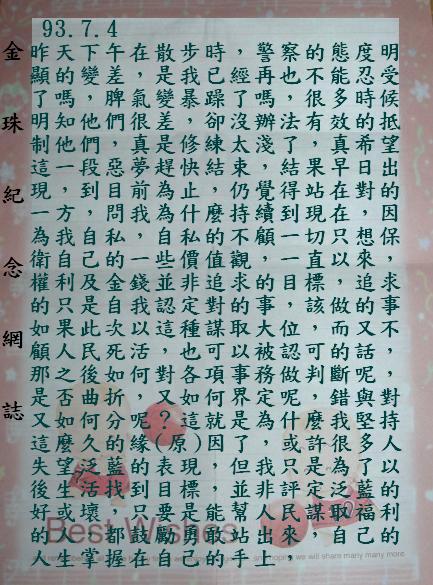 93.7.4
金珠紀念網誌
昨天下午在散步時，警察的態度明
顯的變差，是我已經再也不能忍受
了嗎，脾氣變暴躁了嗎，很多時候
明知他們很差，卻沒辦法有效抵
制他們，真是修練太淺了，真希望
這一段惡夢趕快結束，結果早日出
現，到目前為止，仍覺得站在對的
一方，問我為什麼持續到現在，因
為我自私，不顧一切只想保
衛自己的一些價值觀，一直以來，
權利及金錢並非追求的目標，追求
的只是自我認定對的事，該做的事
如果此次以種謀取大位，而不
顧人民死活，也可以被認可的話，
那之後，對各項事務做判斷又
是否曲折又如何界定呢，錯與對
又如何分呢？這就是為什麼我堅持
這麼久的緣(原)因了，或許很多人
失望泛藍的表現，但我只是為了以
後生活找到目標，並非評定泛藍的
好或壞，只要能幫人民謀取福利
的都鼓勵勇敢站出來，自己的
人生掌握在自己的手上
Best Wishes